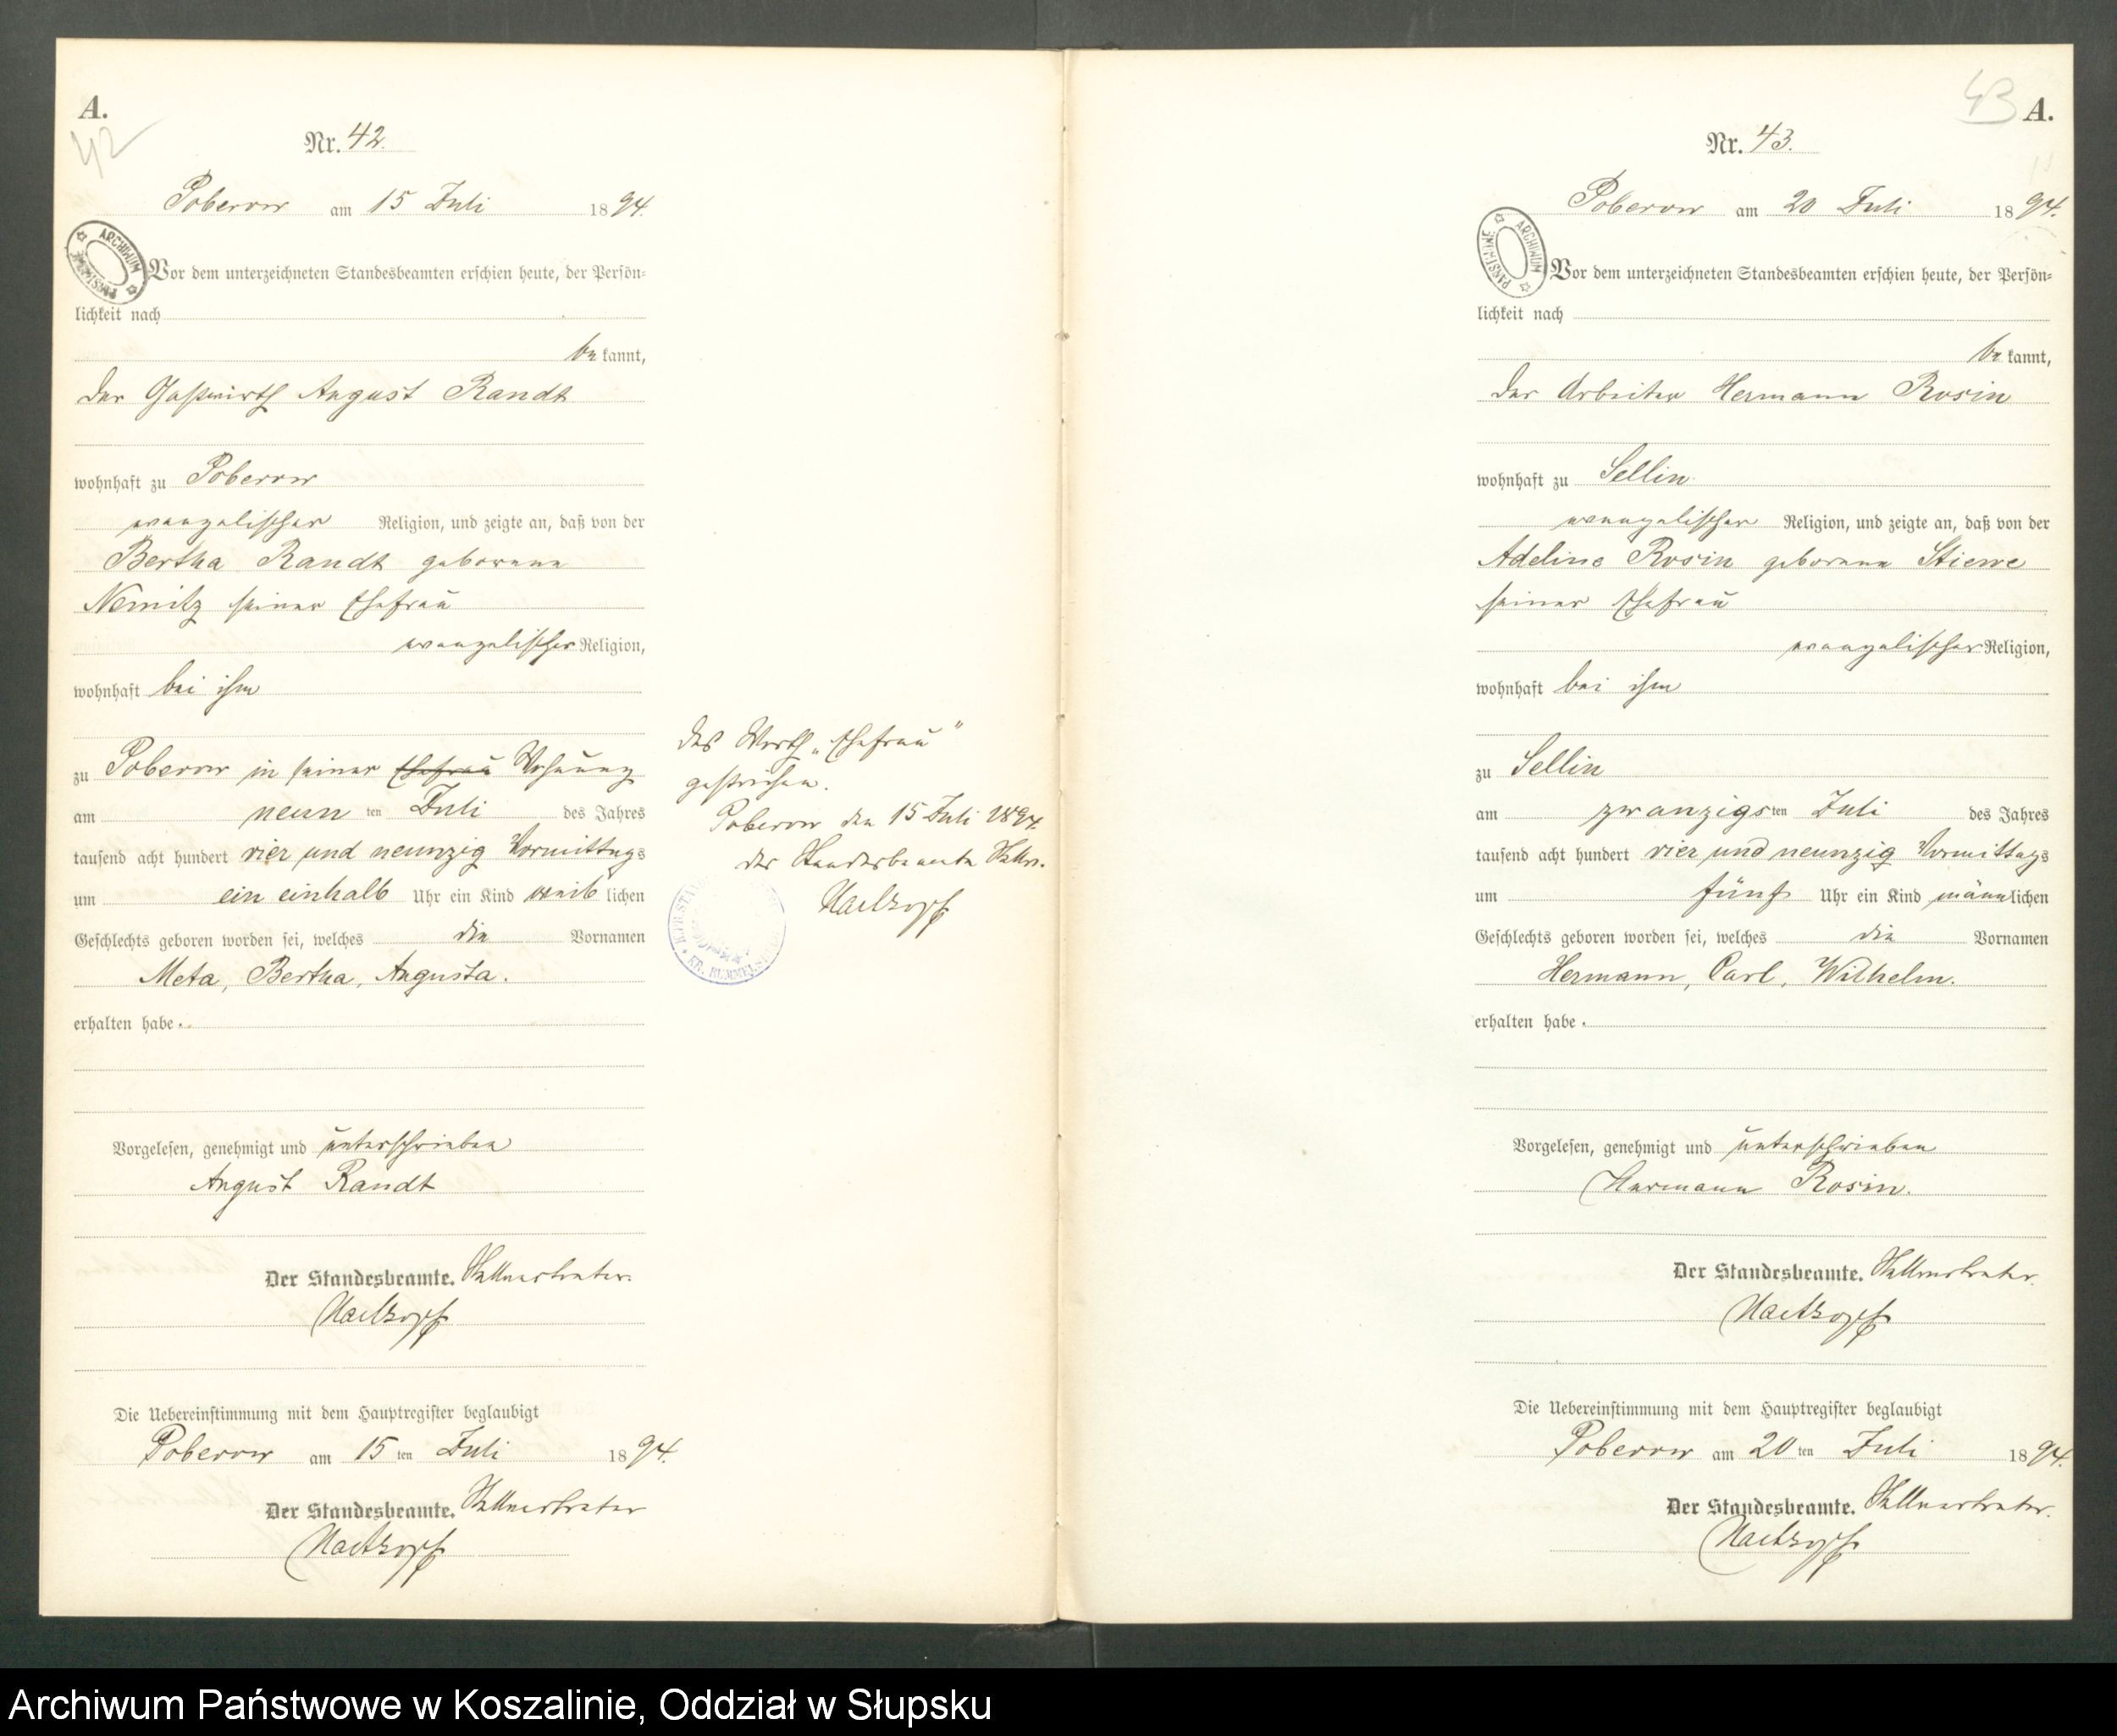 A.
42
Nr. 42.
Poberow am 15 Juli 1894.
ARCHIWUM PAŃSTWOWE
Vor dem unterzeichneten Standesbeamten erschien heute, der Persön-
lichkeit nach
bekannt,
der Gastwirth August Randt
wohnhaft zu Poberow
evangelischer Religion, und zeigte an, daß von der
Bertha Randt geborene
Nemitz seiner Ehefrau
evangelischer Religion,
wohnhaft bei ihm
zu Poberow in seiner Ehefrau Wohnung
am neunten Juli des Jahres
tausend acht hundert vier und neunzig Vormittags
um ein einhalb Uhr ein Kind weiblichen
Geschlechts geboren worden sei, welches die Vornamen
Meta, Bertha, Augusta.
erhalten habe.
Vorgelesen, genehmigt und unterschrieben
August Randt
Der Standesbeamte. Stellvertreter.
Die Uebereinstimmung mit dem Hauptregister beglaubigt
Poberow am 15ten Juli 1894.
Der Standesbeamte. Stellvertreter
Das Worth „Ehefrau"
gestrichen.
Poberow den 15 Juli 1894.
der Standesbeamte Stellv.
KR. RUMMELSBURG
43
A.
Nr. 43.
Poberow am 20 Juli 1894.
ARCHIWUM PAŃSTWOWE
Vor dem unterzeichneten Standesbeamten erschien heute, der Persön-
lichkeit nach
bekannt,
der Arbeiter Hermann Rosin
wohnhaft zu Sellin
evangelischer Religion, und zeigte an, daß von der
Adeline Rosin geborene Stiewe
seiner Ehefrau
evangelischer Religion,
wohnhaft bei ihm
zu Sellin
am zwanzigsten Juli des Jahres
tausend acht hundert vier und neunzig Vormittags
um fünf Uhr ein Kind männlichen
Geschlechts geboren worden sei, welches die Vornamen
Hermann, Carl, Wilhelm.
erhalten habe.
Vorgelesen, genehmigt und unterschrieben
Hermann Rosin.
Der Standesbeamte. Stellvertreter.
Die Uebereinstimmung mit dem Hauptregister beglaubigt
Poberow am 20ten Juli 1894.
Der Standesbeamte. Stellvertreter.
Archiwum Państwowe w Koszalinie, Oddział w Słupsku